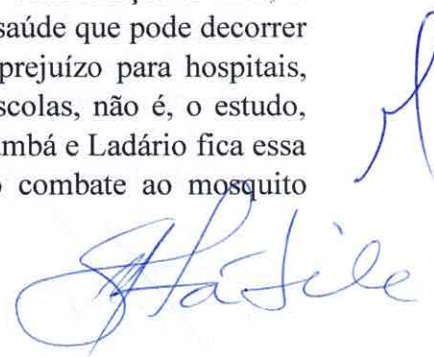 saúde que pode decorrer
prejuízo para hospitais,
scolas, não é, o estudo,
mbá e Ladário fica essa
o combate ao mosquito